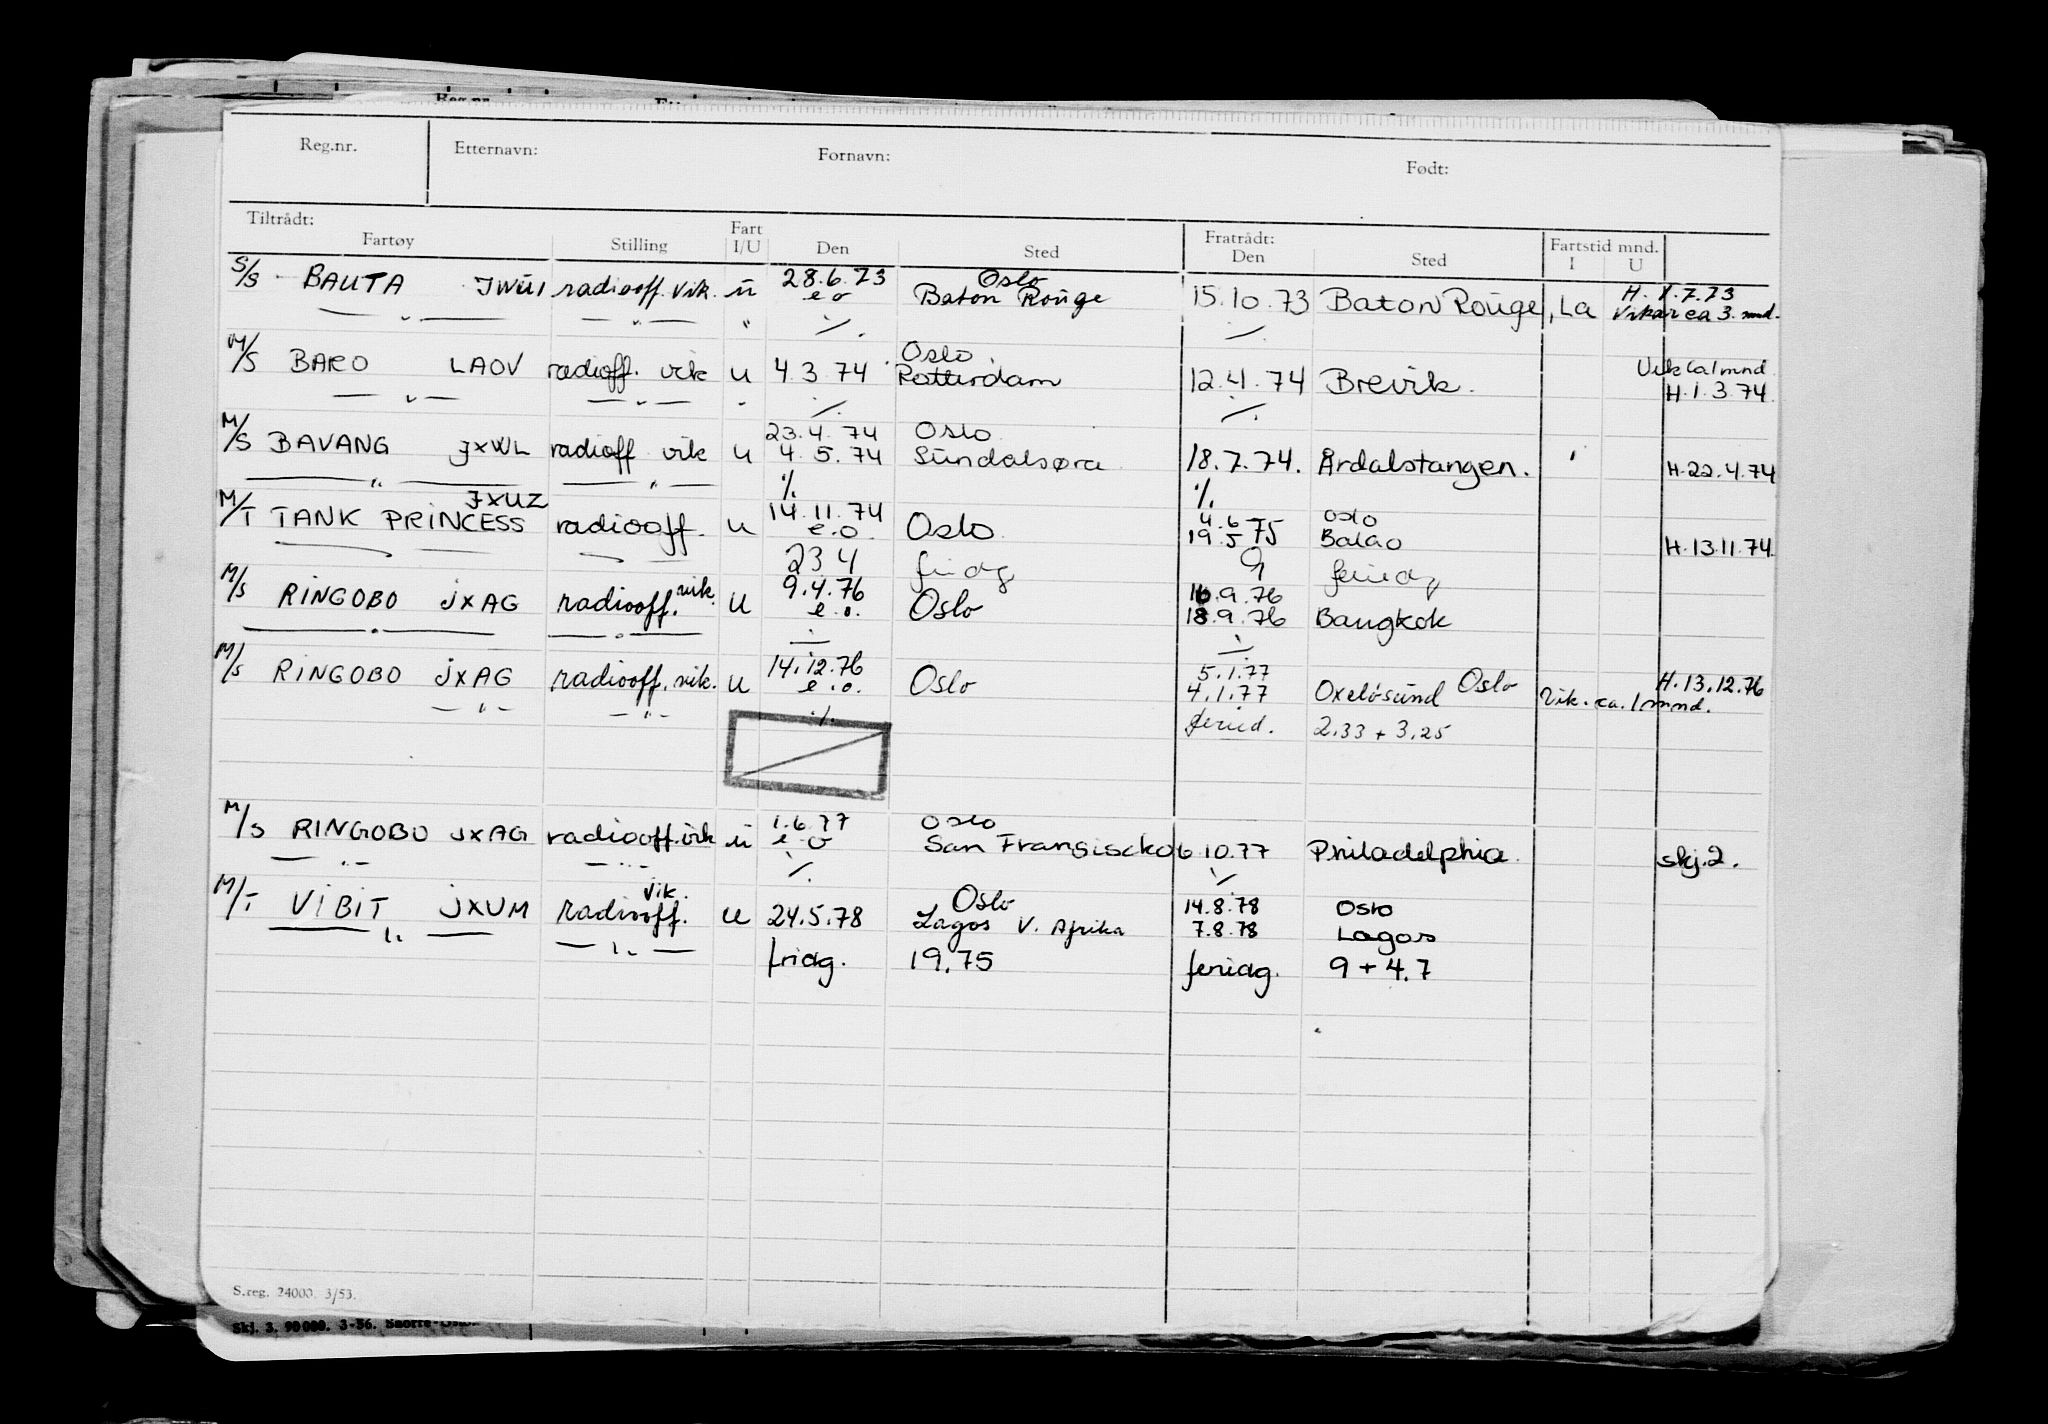 Reg.nr. Etternavn: Fornavn: Født:
Tiltrådt: Fartøy Stilling Fart I/U Den Sted Fratrådt: Den Sted Fartstid mnd. I U
S/S BAUTA JWUI radiooff. vik. u 28.6.73 Oslo
e o Baton Rouge 15.10.73 Baton Rouge, La H. 1.7.73
Vikar ca 3. mnd.
— " — — " — " ./. ./.
M/S BARO LAOV radioff. vik u 4.3.74 Oslo
Rotterdam 12.4.74 Brevik. Vik ca 1 mnd
H.1.3.74.
— " — — " — " ./. ./.
M/S BAVANG JXWL radioff vik u 23.4.74 Oslo
4.5.74 Sundalsøra 18.7.74. Årdalstangen. H.22.4.74
— " — — " — ./. ./.
M/T TANK PRINCESS JXUZ radiooff. u 14.11.74
e.o. Oslo 4.6 75 Oslo
19.5 Balao H.13.11.74
23 4 friag 9 feriedg
M/S RINGOBO JXAG radiooff. vik. u 9.4.76
e.o. Oslo 16.9.76
18.9.76 Bangkok
— " — — " — ./. ./.
M/S RINGOBO JXAG radiooff. vik. u 14.12.76
e.o. Oslo 5.1.77 Oslo
4.1.77 Oxelösund H.13.12.76
Vik. ca. 1 mnd.
— " — — " — ./. feried. 2,33 + 3,25
M/S RINGOBO JXAG radiooff. vik u 1.6.77 Oslo
e o San Fransiscko 6 10.77 Philadelphia. skj.2.
— " — — " — ./. ./.
M/T VIBIT JXUM radiooff. vik. u 24.5.78 Oslo
Lagos V. Afrika 14.8.78 Oslo
7.8.78 Lagos
— " — — " — friag. 19,75 feriag. 9 + 4.7
S.reg. 24000. 3/53.
Skj. 3. 90 000. 3-56.